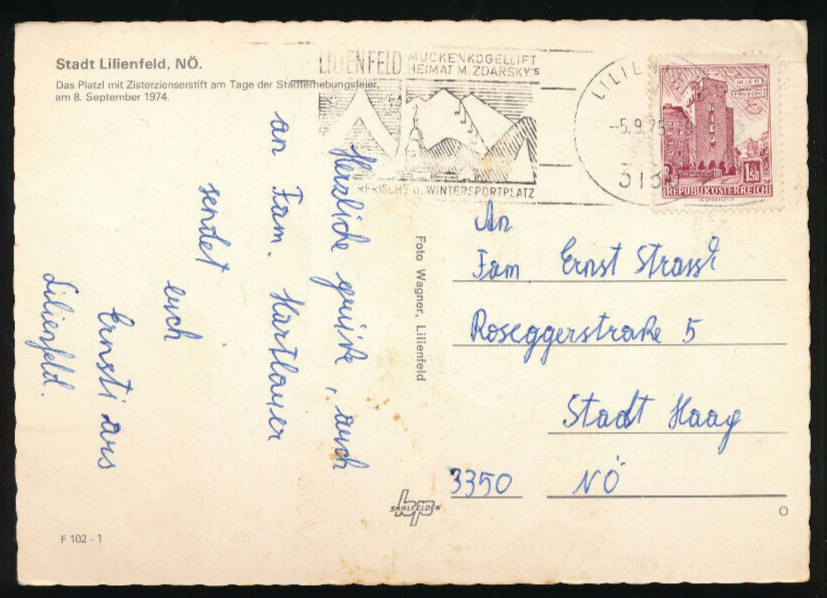 Stadt Lilienfeld, NÖ.
Das Platzl mit Zisterzienserstift am Tage der Stadterhebungsfeier,
am 8. September 1974.
LILIENFELD MUCKENKOGELLIFT
HEIMAT M. ZDARSKY'S
U. WINTERSPORTPLATZ
LILIEN
-5.9.75
WIEN
1.50
REPUBLIK ÖSTERREICH
Herzliche grüße, auch
an Fam. Hartlauer
sendet
euch
Ernsti aus
Lilienfeld.
Foto Wagner, Lilienfeld
An
Fam. Ernst Strassl
Roseggerstraße 5
Stadt Haag
3350 NÖ
SAALFELDEN
F 102 - 1